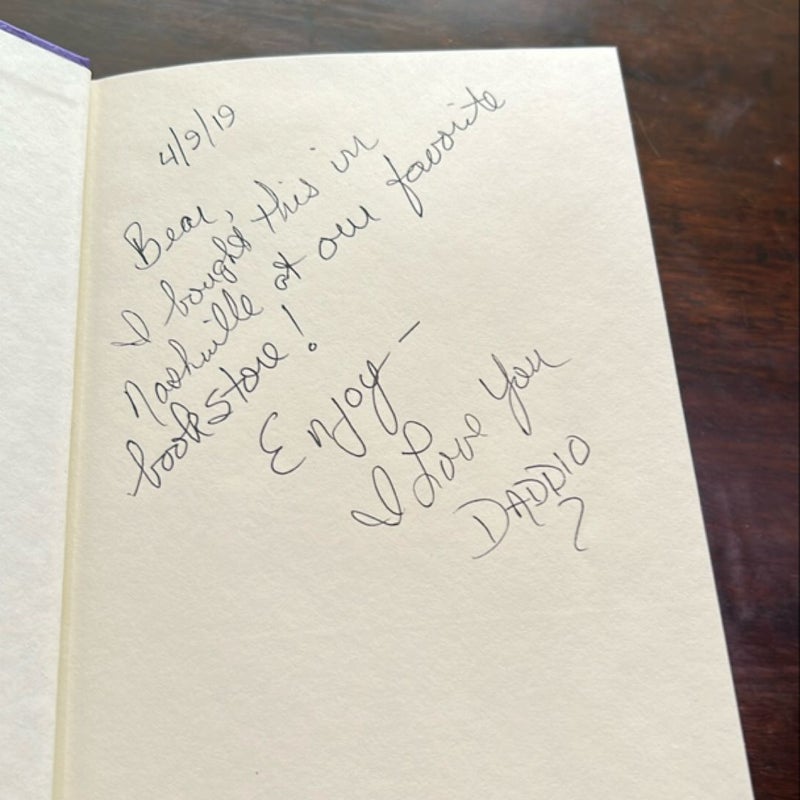 4/9/19
Bear,
I bought this in
Nashville at our favorite
bookstore!
Enjoy –
I Love You
DADDIO